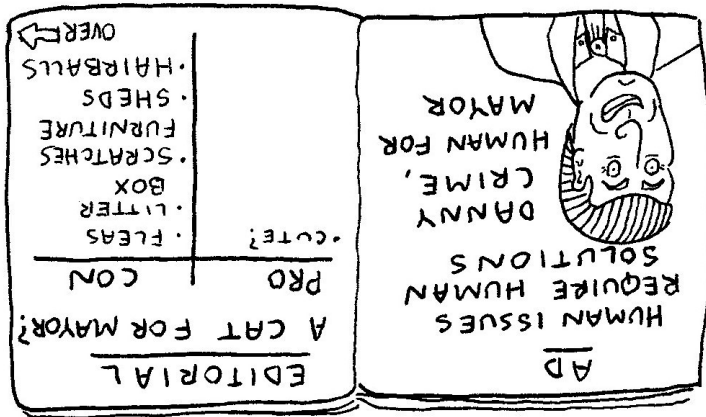 AD
HUMAN ISSUES
REQUIRE HUMAN
SOLUTIONS
DANNY
CRIME,
HUMAN FOR
MAYOR
EDITORIAL
A CAT FOR MAYOR?
PRO
• CUTE?
CON
• FLEAS
• LITTER
BOX
• SCRATCHES
FURNITURE
• SHEDS
• HAIRBALLS
OVER